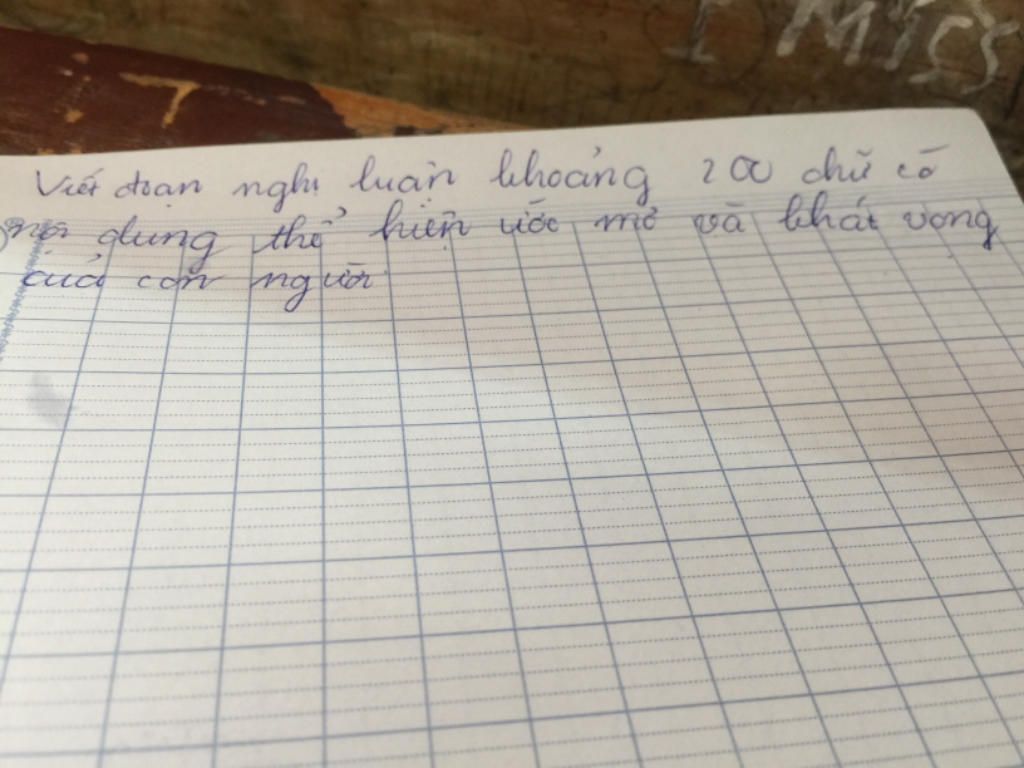 I Miss
Viết đoạn nghị luận khoảng 200 chữ có
nội dung thể hiện ước mơ và khát vọng
của con người